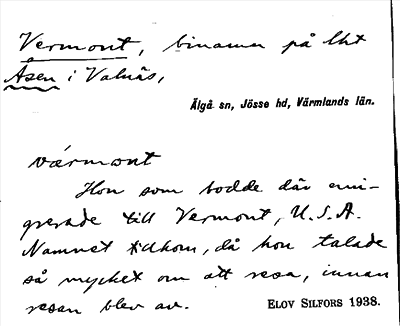 Vermont, binamn på lht
Åsen i Valnäs,
Älgå sn, Jösse hd, Värmlands län.
värmont
Hon som bodde där emi-
grerade till Vermont, U.S.A.
Namnet tillkom, då hon talade
så mycket om att resa, innan
resan blev av.
ELOV SILFORS 1938.